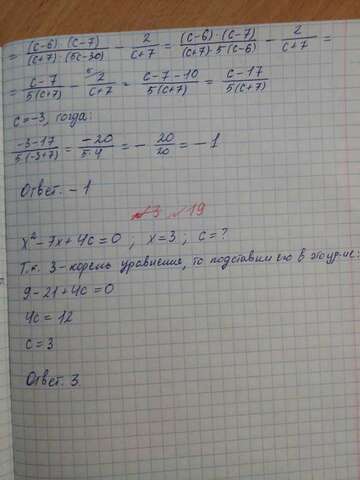 = (c-6)·(c-7)/(c+7)·(5c-30) - 2/c+7 = (c-6)·(c-7)/(c+7)·5(c-6) - 2/c+7 =
= c-7/5(c+7) - 2/c+7 = c-7-10/5(c+7) = c-17/5(c+7)
c=-3, тогда:
-3-17/5(-3+7) = -20/5·4 = - 20/20 = -1
Ответ. -1
19
x²-7x+4c=0 ; x=3 ; c=?
Т.к. 3-корень уравнения, то подставим его в это ур-ие:
9-21+4c=0
4c=12
c=3
Ответ. 3.